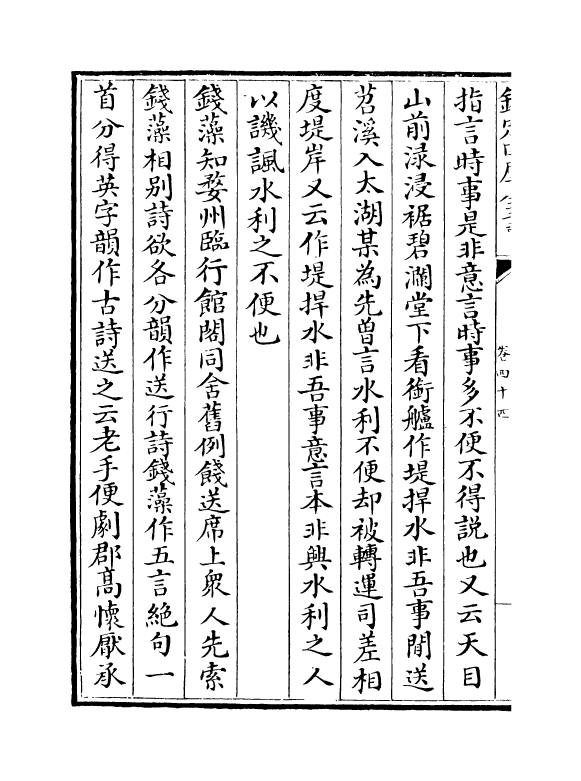 欽定四庫全書
卷四十四
指言時事是非意言時事多不便不得説也又云天目
山前渌浸裾碧瀾堂下看銜艫作堤捍水非吾事閒送
苕溪入太湖某為先曽言水利不便却被轉運司差相
度堤岸又云作堤捍水非吾事意言本非興水利之人
以譏諷水利之不便也
錢藻知婺州臨行館閣同舍舊例餞送席上衆人先索
錢藻相别詩欲各分韻作送行詩錢藻作五言絶句一
首分得英字韻作古詩送之云老手便劇郡髙懷厭承